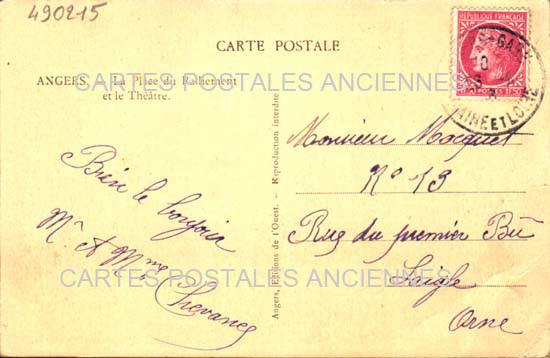 490215
CARTE POSTALE
ANGERS. — La Place du Ralliement
et le Théâtre.
CARTES POSTALES ANCIENNES
RÉPUBLIQUE FRANÇAISE
1F50 POSTES 1F50
MAINE ET LOIRE
Bien le bonjour
Mr & Mme
Chevance
Angers, Editions de l'Ouest. - Reproduction interdite
Monsieur Mocquet
No 13
Rue du premier Bū
Laigle
Orne
CARTES POSTALES ANCIENNES